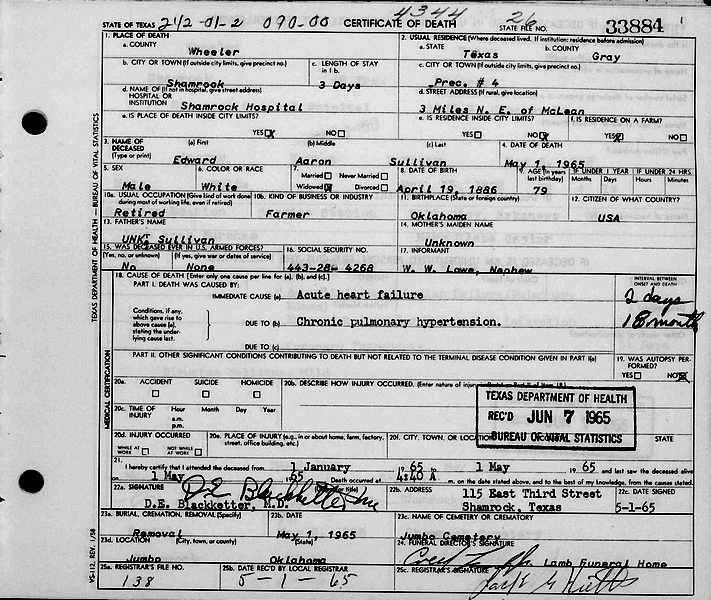 STATE OF TEXAS 242-01-2 090-00 CERTIFICATE OF DEATH 4344 26 STATE FILE NO. 33884
1. PLACE OF DEATH
a. COUNTY
Wheeler
2. USUAL RESIDENCE (Where deceased lived. If institution: residence before admission)
a. STATE
Texas
b. COUNTY
Gray
b. CITY OR TOWN (If outside city limits, give precinct no.)
Shamrock
c. LENGTH OF STAY in 1 b.
3 Days
c. CITY OR TOWN (If outside city limits, give precinct no.)
Prec. # 4
d. NAME OF (If not in hospital, give street address)
HOSPITAL OR
INSTITUTION
Shamrock Hospital
d. STREET ADDRESS (If rural, give location)
3 Miles N. E. of McLean
e. IS PLACE OF DEATH INSIDE CITY LIMITS?
YES NO
e. IS RESIDENCE INSIDE CITY LIMITS?
YES NO
f. IS RESIDENCE ON A FARM?
YES NO
3. NAME OF DECEASED
(Type or print)
(a) First
Edward
(b) Middle
Aaron
(c) Last
Sullivan
4. DATE OF DEATH
May 1, 1965
5. SEX
Male
6. COLOR OR RACE
White
7.
Married Never Married
Widowed Divorced
8. DATE OF BIRTH
April 19, 1886
9. AGE (In years last birthday)
79
IF UNDER 1 YEAR
Months Days
IF UNDER 24 HRS.
Hours Minutes
10a. USUAL OCCUPATION (Give kind of work done during most of working life, even if retired)
Retired
10b. KIND OF BUSINESS OR INDUSTRY
Farmer
11. BIRTHPLACE (State or foreign country)
Oklahoma
12. CITIZEN OF WHAT COUNTRY?
USA
13. FATHER'S NAME
UNK. Sullivan
14. MOTHER'S MAIDEN NAME
Unknown
15. WAS DECEASED EVER IN U.S. ARMED FORCES?
(Yes, no, or unknown) (If yes, give war or dates of service)
No None
16. SOCIAL SECURITY NO.
443-28- 4268
17. INFORMANT
W. W. Lowe, Nephew
18. CAUSE OF DEATH [Enter only one cause per line for (a), (b), and (c).]
INTERVAL BETWEEN
ONSET AND DEATH
PART I. DEATH WAS CAUSED BY:
IMMEDIATE CAUSE (a) Acute heart failure 2 days
Conditions, if any,
which gave rise to
above cause (a),
stating the under-
lying cause last.
DUE TO (b) Chronic pulmonary hypertension. 18 months
DUE TO (c)
PART II. OTHER SIGNIFICANT CONDITIONS CONTRIBUTING TO DEATH BUT NOT RELATED TO THE TERMINAL DISEASE CONDITION GIVEN IN PART I(a)
19. WAS AUTOPSY PERFORMED?
YES NO
20a. ACCIDENT SUICIDE HOMICIDE
20b. DESCRIBE HOW INJURY OCCURRED. (Enter nature of injury
20c. TIME OF INJURY
Hour Month Day Year
a.m.
p.m.
20d. INJURY OCCURRED
WHILE AT WORK NOT WHILE AT WORK
20e. PLACE OF INJURY (e.g., in or about home, farm, factory, street, office building, etc.)
20f. CITY, TOWN, OR LOCATION STATE
TEXAS DEPARTMENT OF HEALTH
REC'D JUN 7 1965
BUREAU OF VITAL STATISTICS
21.
I hereby certify that I attended the deceased from 1 January 1965 to 1 May 1965 and last saw the deceased alive
on 1 May 65 Death occurred at 4:40 A m. on the date stated above, and to the best of my knowledge, from the causes stated.
22a. SIGNATURE (Degree or title)
D.E. Blackketter, M.D.
22b. ADDRESS
115 East Third Street
Shamrock, Texas
22c. DATE SIGNED
5-1-65
23a. BURIAL, CREMATION, REMOVAL (Specify)
Removal
23b. DATE
May 1, 1965
23c. NAME OF CEMETERY OR CREMATORY
Jumbo Cemetery
23d. LOCATION (City, town, or county) (State)
Jumbo Oklahoma
24. FUNERAL DIRECTOR'S SIGNATURE
Lamb Funeral Home
25a. REGISTRAR'S FILE NO.
138
25b. DATE REC'D BY LOCAL REGISTRAR
5-1-65
25c. REGISTRAR'S SIGNATURE
TEXAS DEPARTMENT OF HEALTH — BUREAU OF VITAL STATISTICS
MEDICAL CERTIFICATION
VS-112, REV. 1/58